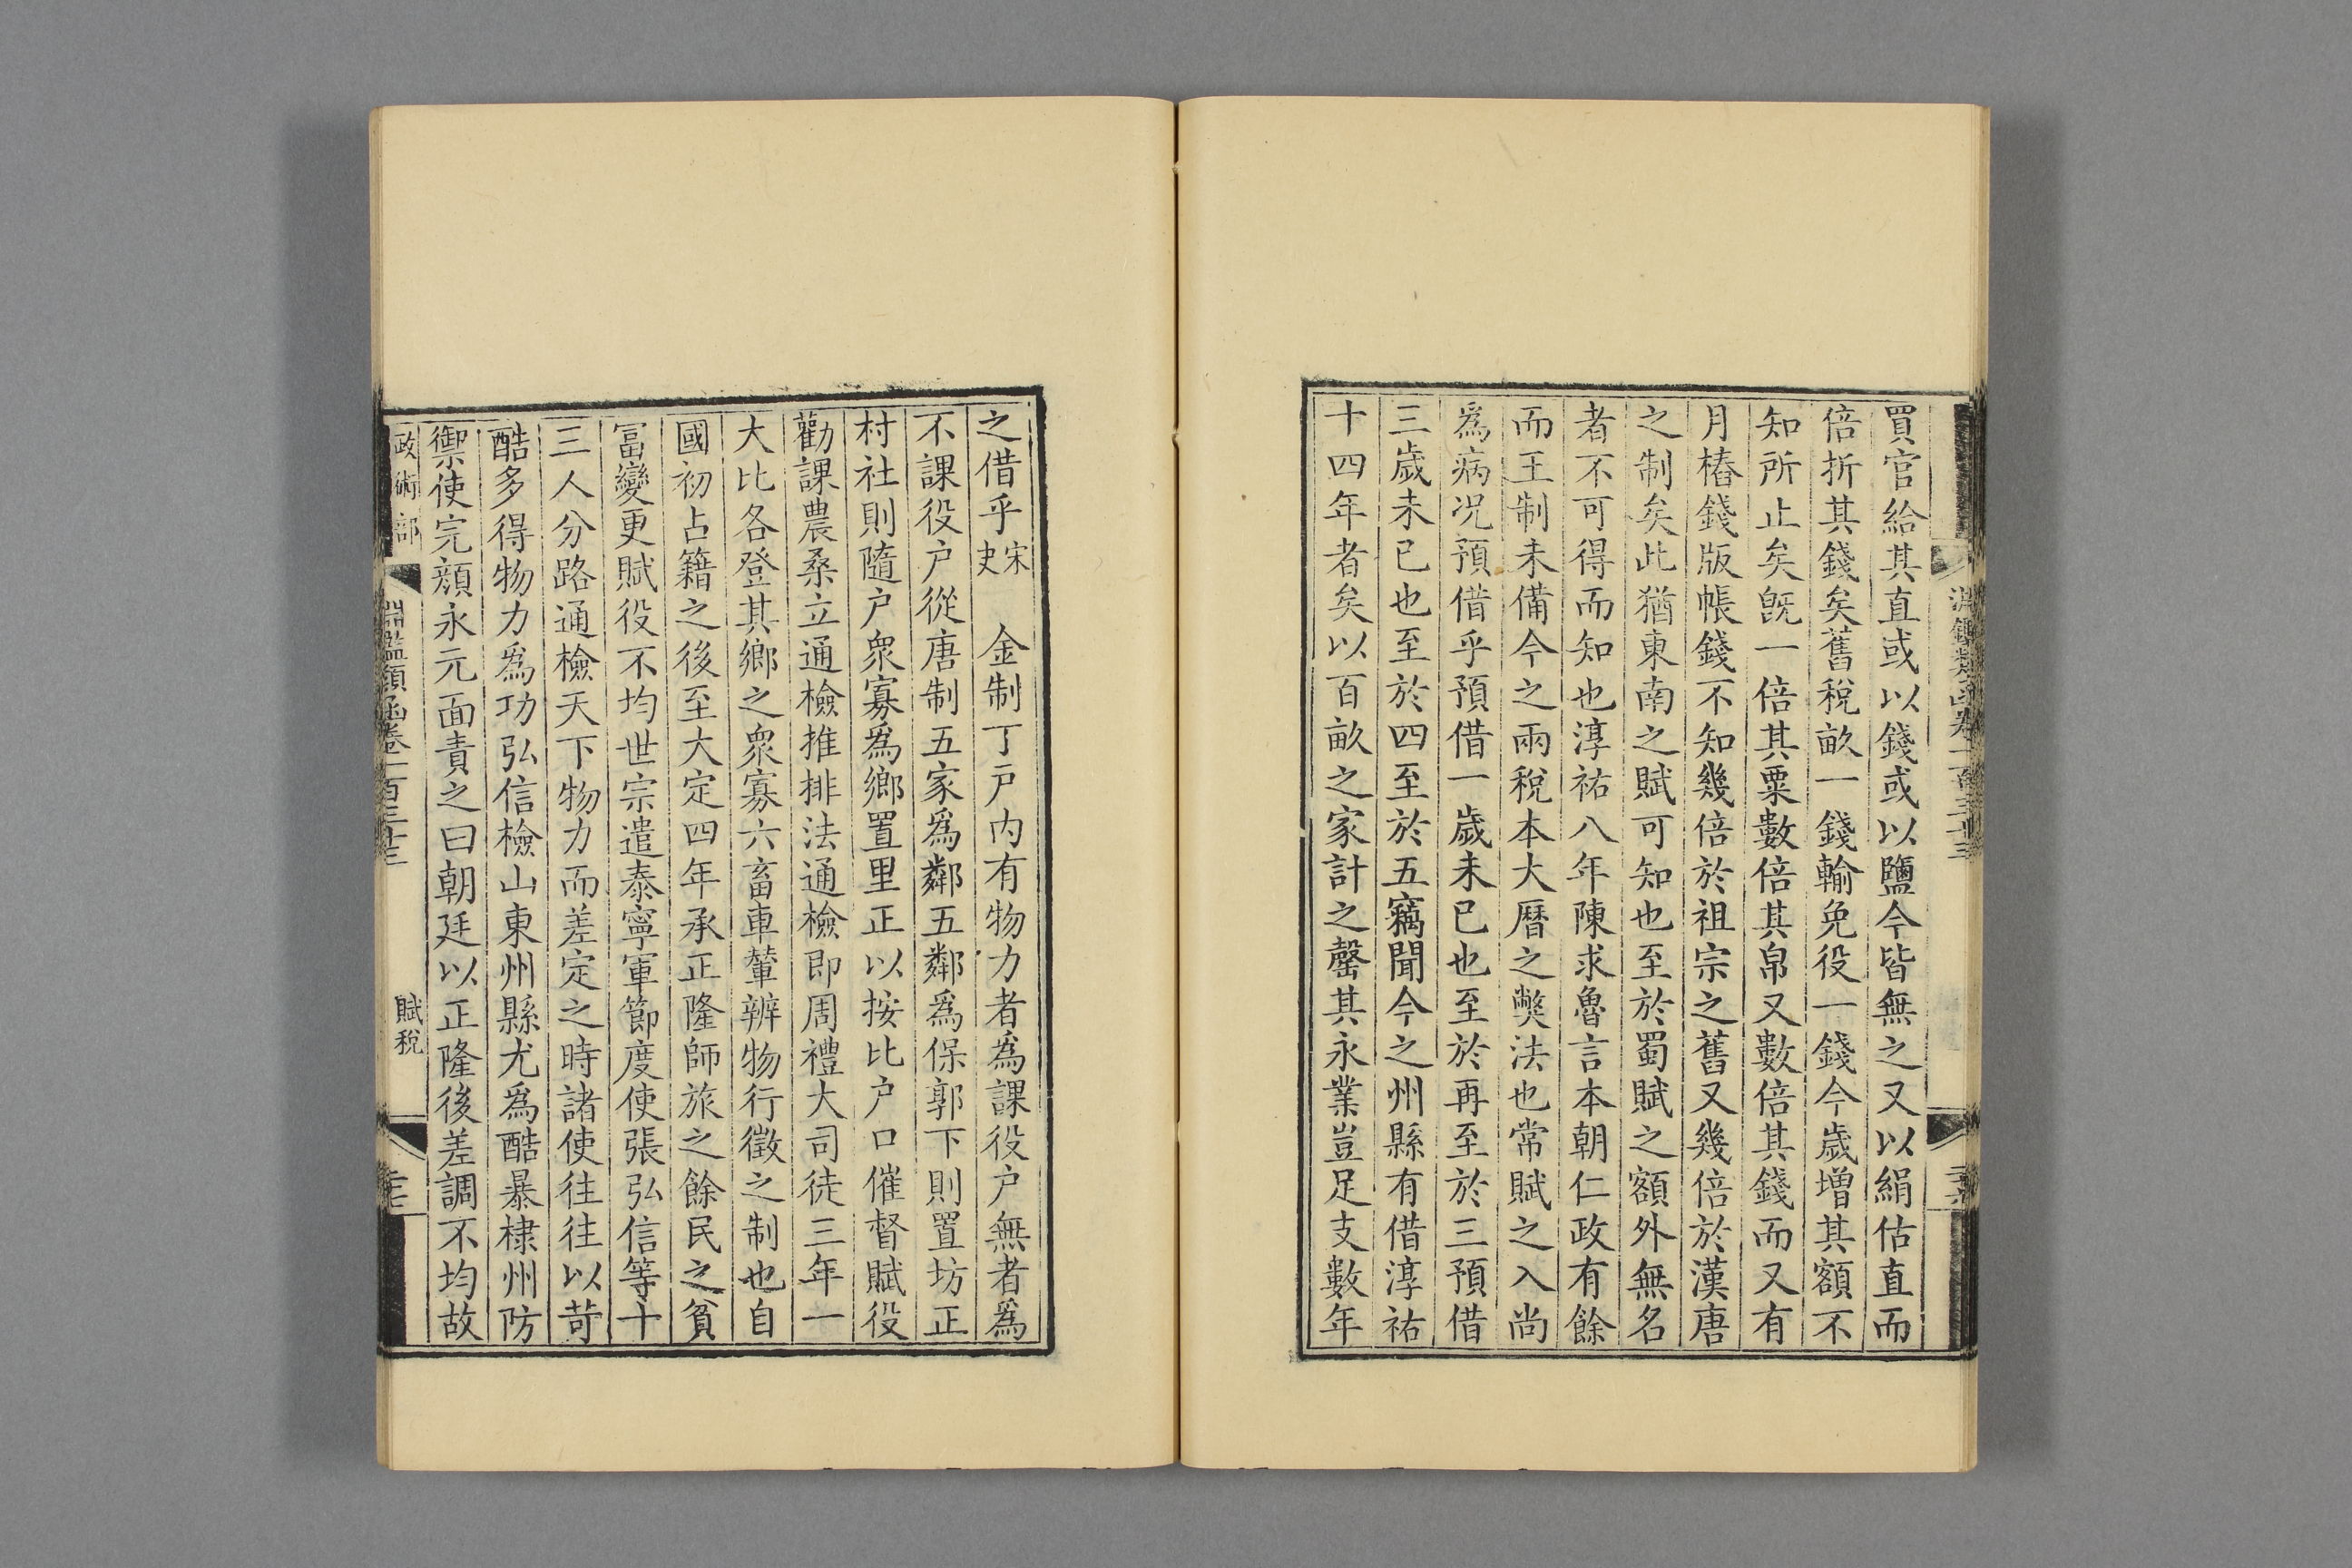 淵鑑類函卷一百三十三
買官給其直或以錢或以鹽今皆無之又以絹估直而
倍折其錢矣舊稅畝一錢輸免役一錢今歲增其額不
知所止矣旣一倍其粟數倍其帛又數倍其錢而又有
月樁錢版帳錢不知幾倍於祖宗之舊又幾倍於漢唐
之制矣此猶東南之賦可知也至於蜀賦之額外無名
者不可得而知也淳祐八年陳求魯言本朝仁政有餘
而王制未備今之兩稅本大曆之獘法也常賦之入尚
爲病況預借乎預借一歲未已也至於再至於三預借
三歲未已也至於四至於五竊聞今之州縣有借淳祐
十四年者矣以百畝之家計之罄其永業豈足支數年
之借乎宋史　金制丁戸內有物力者為課役户無者爲
不課役户從唐制五家爲鄰五鄰爲保郭下則置坊正
村社則隨户衆寡爲鄉置里正以按比户口催督賦役
勸課農桑立通檢推排法通檢即周禮大司徒三年一
大比各登其鄉之衆寡六畜車輦辨物行徵之制也自
國初占籍之後至大定四年承正隆師旅之餘民之貧
富變更賦役不均世宗遣泰寧軍節度使張弘信等十
三人分路通檢天下物力而差定之時諸使往往以苛
酷多得物力爲功弘信檢山東州縣尤爲酷暴棣州防
禦使完顏永元面責之曰朝廷以正隆後差調不均故
政術部
淵鑑類函卷一百三十三
賦稅